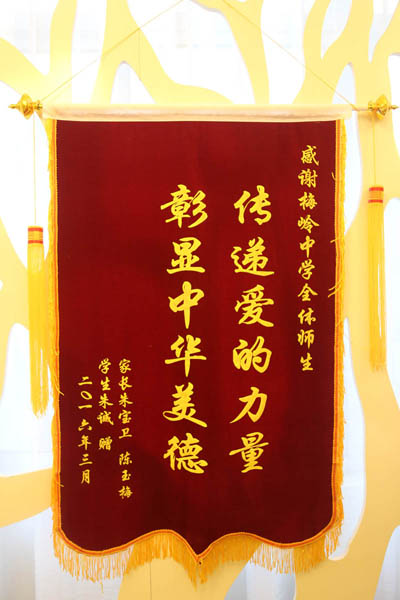 感谢梅岭中学全体师生
传递爱的力量
彰显中华美德
家长朱宝卫 陈玉梅
学生朱诚 赠
二〇一六年三月